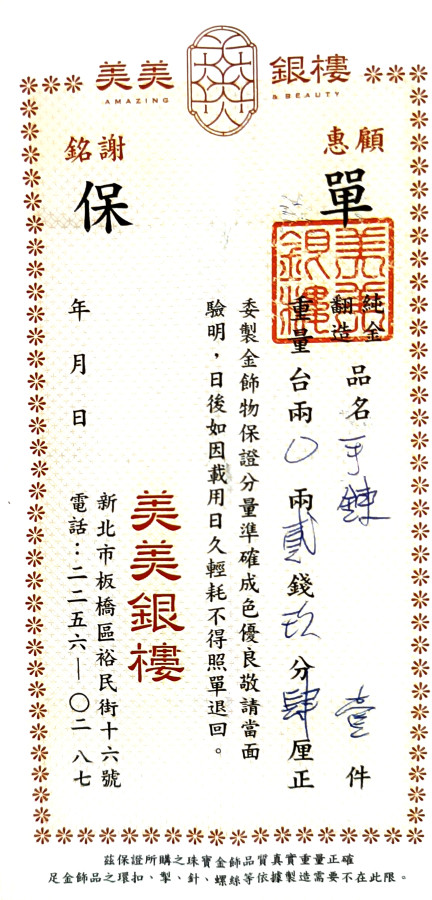 美美 銀樓
AMAZING & BEAUTY
惠顧
銘謝
保單
美美銀樓
純金翻造 品名 手鍊 壹 件
重量台兩 〇 兩 貳 錢 玖 分 肆 厘正
委製金飾物保證分量準確成色優良敬請當面
驗明，日後如因載用日久輕耗不得照單退回。
美美銀樓
新北市板橋區裕民街十六號
電話：二二五六—〇二八七
年 月 日
茲保證所購之珠寶金飾品質真實重量正確
足金飾品之環扣、犁、針、螺絲等依據製造需要不在此限。